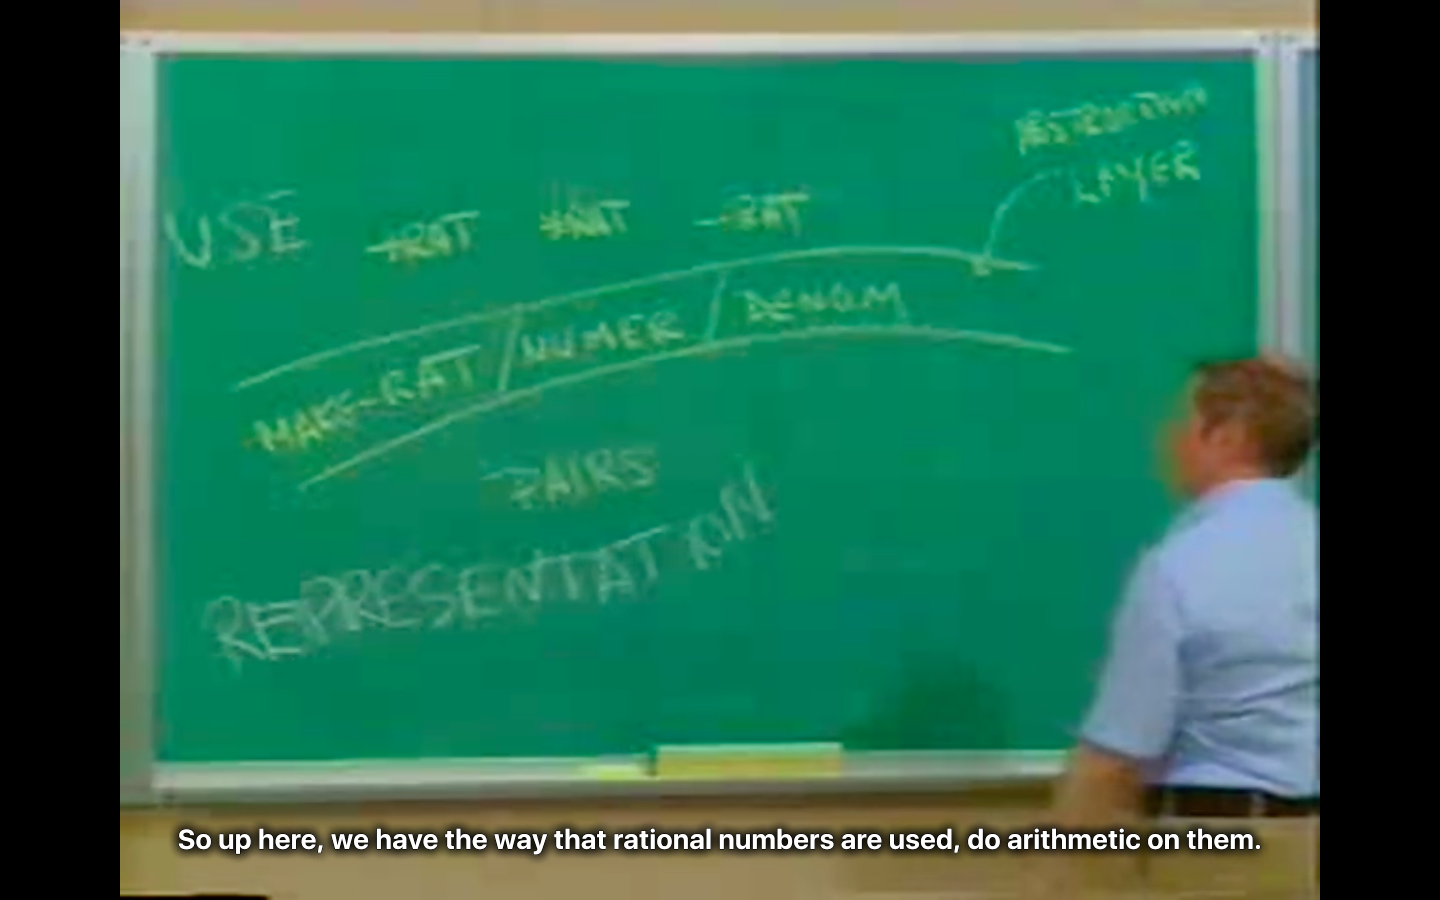 ABSTRACTION
LAYER
USE +RAT *RAT -RAT
MAKE-RAT / NUMER / DENOM
PAIRS
REPRESENTATION
So up here, we have the way that rational numbers are used, do arithmetic on them.